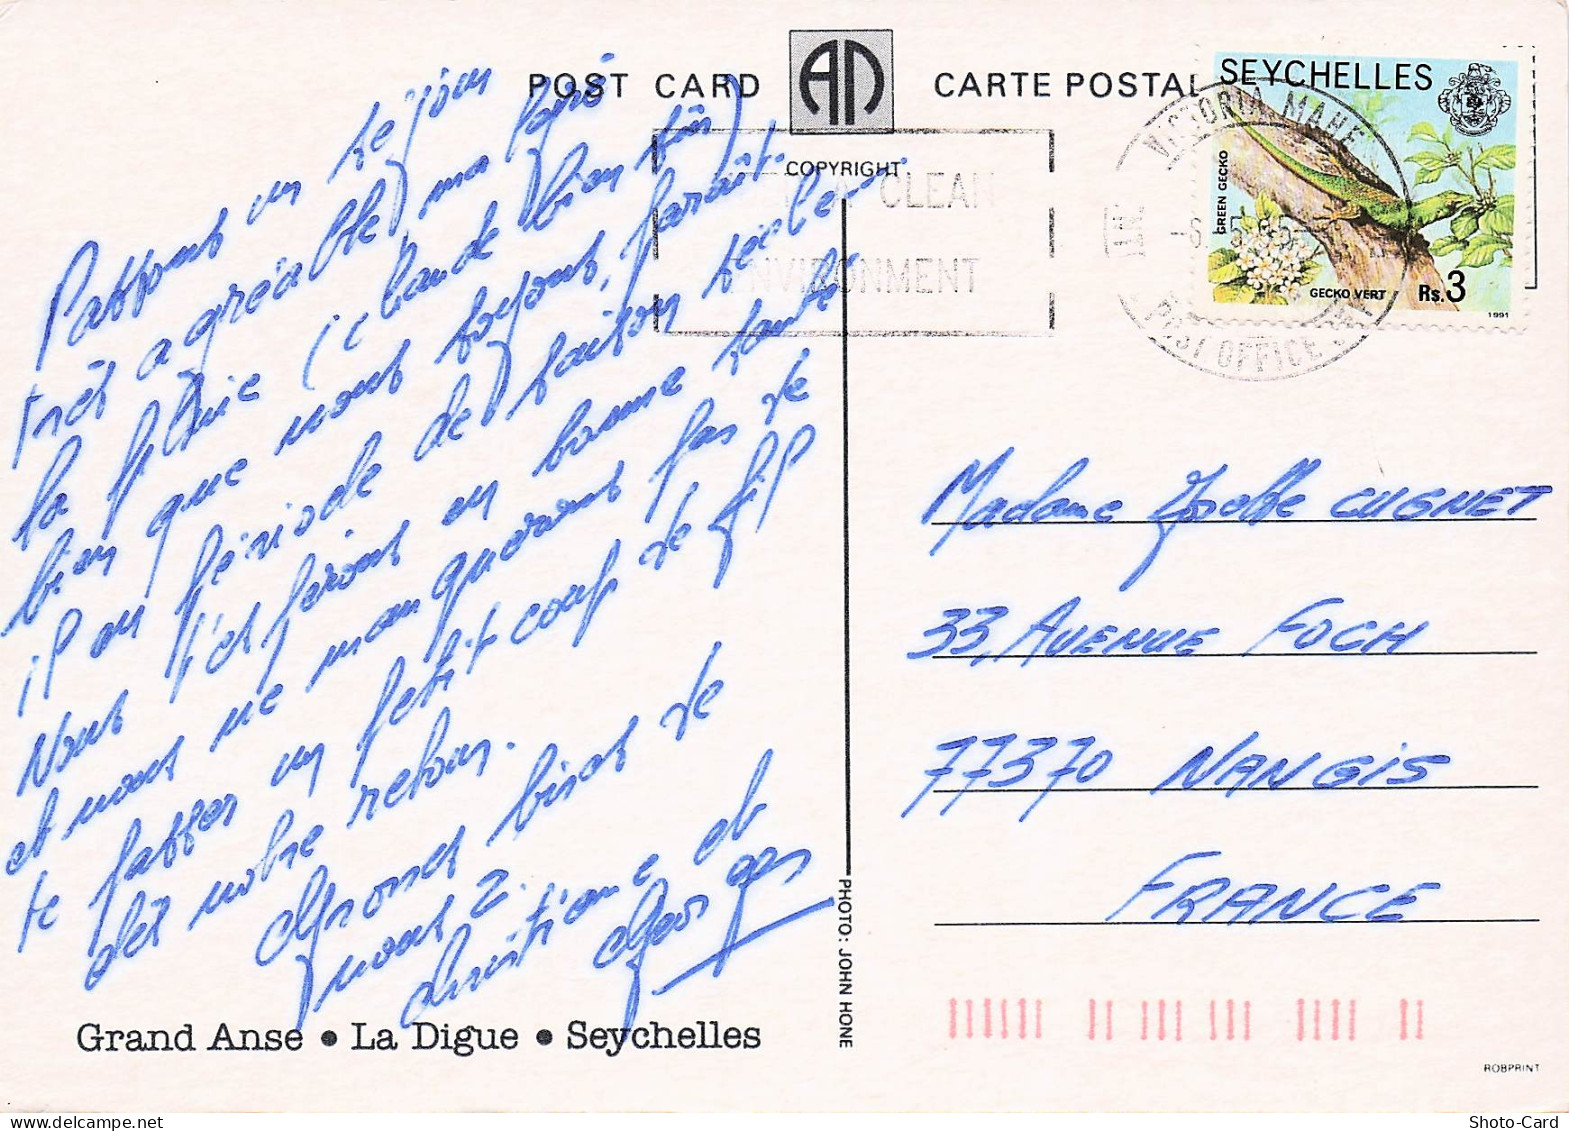 POST CARD
AN
CARTE POSTAL
COPYRIGHT
SEYCHELLES
GREEN GECKO
GECKO VERT
Rs.3
1991
VICTORIA MAHE
POST OFFICE
CLEAN
ENVIRONMENT
Passons un séjour
très agréable malgré
la pluie (claude bien sûr)
bien que nous soyons, paraît-
il en période de saison sèche
Nous l'espérons en bonne santé
et nous ne manquerons pas de
te passer un petit coup de fil
dès notre retour.
Grosses bises de
nous 2.
Christiane et
Georges
Madame Josette CUGNET
33, AVENUE FOCH
77370 NANGIS
FRANCE
PHOTO: JOHN HONE
Grand Anse • La Digue • Seychelles
ROBPRINT
Shoto-Card